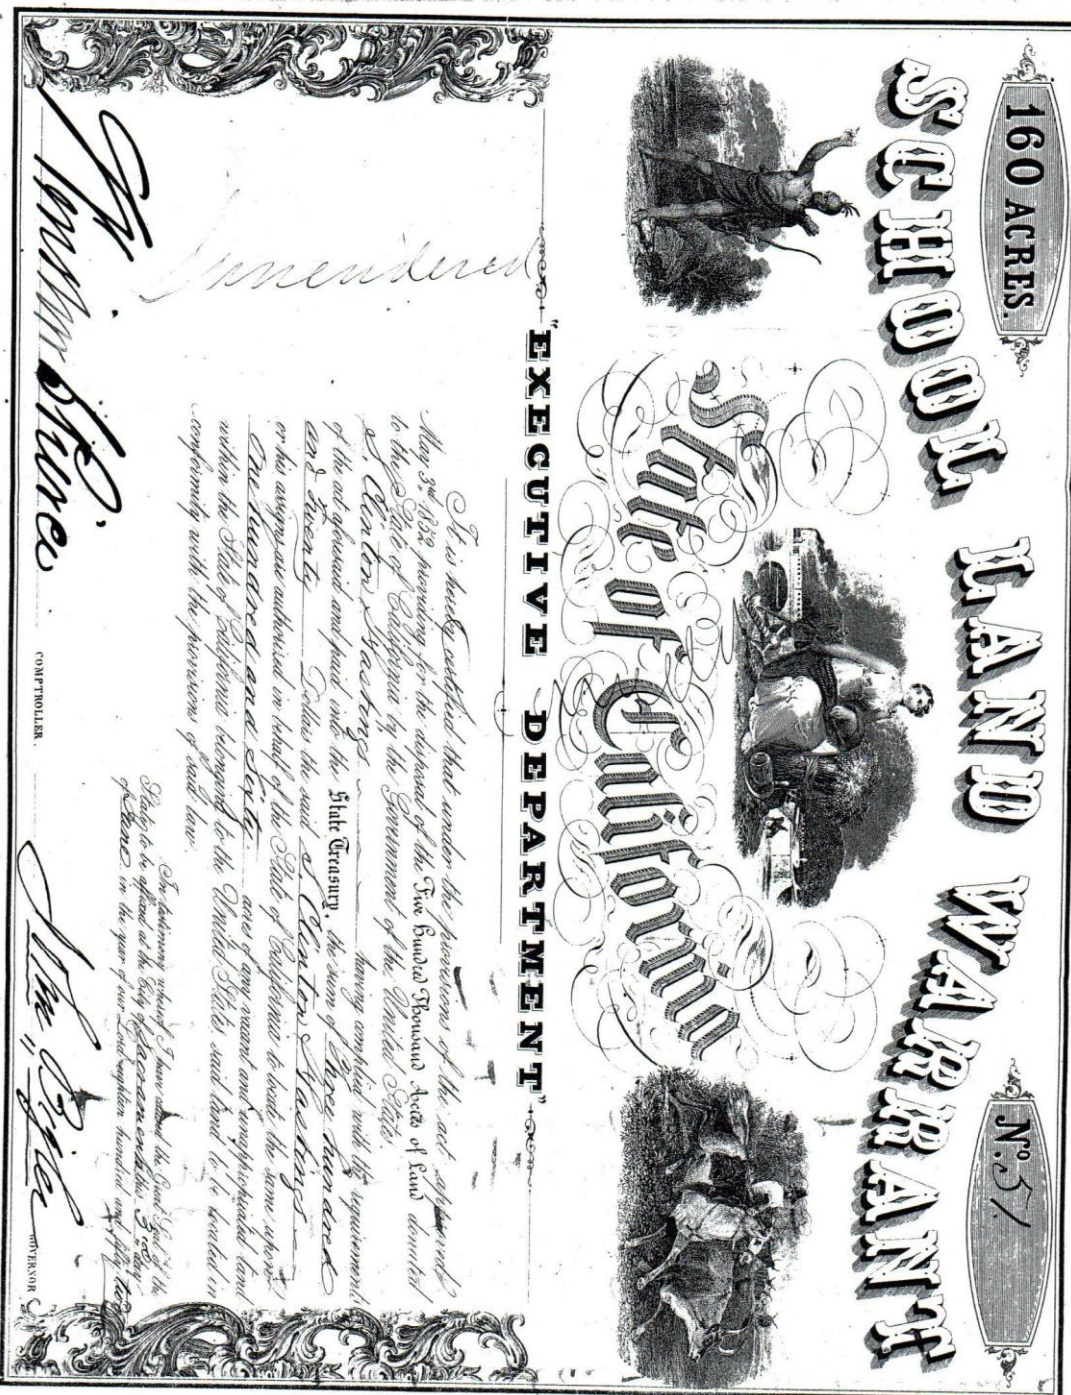 160 ACRES.
Nº. 51.
SCHOOL LAND WARRANT
State of California
"EXECUTIVE DEPARTMENT"
Surrendered
It is hereby certified that under the provisions of the act approved
May 3rd, 1852 providing for the disposal of the Five Hundred Thousand Acres of Land donated
to the State of California by the Government of the United States.
S Clinton Hastings having complied with the requirements
of the act aforesaid and paid into the State Treasury, the sum of Three hundred
and twenty Dollars the said S Clinton Hastings
or his assigns are authorised in behalf of the State of California to locate the same upon
One hundred and Sixty acres of any vacant and unappropriated land
within the State of California belonging to the United States, said land to be located in
conformity with the provisions of said law.
In testimony whereof I have caused the Great Seal of the
State to be affixed at the City of Sacramento this 3rd day
of June in the year of our Lord eighteen hundred and fifty two
COMPTROLLER.
John Bigler
GOVERNOR